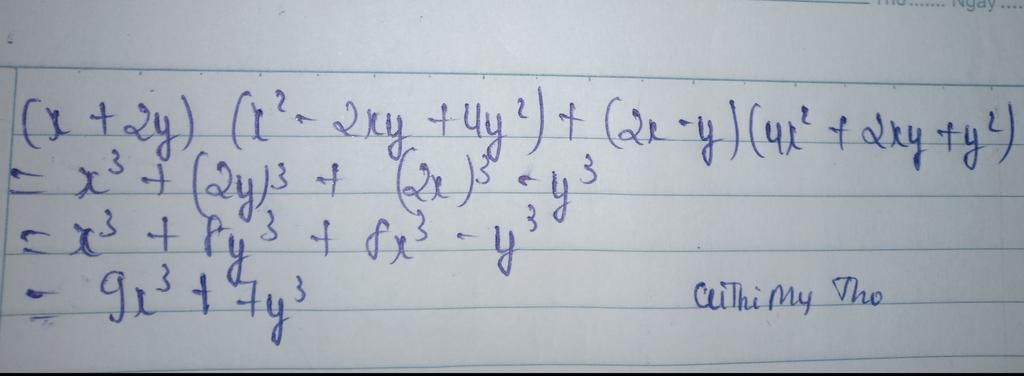 Thứ....... Ngày....
(x + 2y) (x² - 2xy + 4y²) + (2x - y)(4x² + 2xy + y²)
= x³ + (2y)³ + (2x)³ - y³
= x³ + 8y³ + 8x³ - y³
= 9x³ + 7y³
My Tho